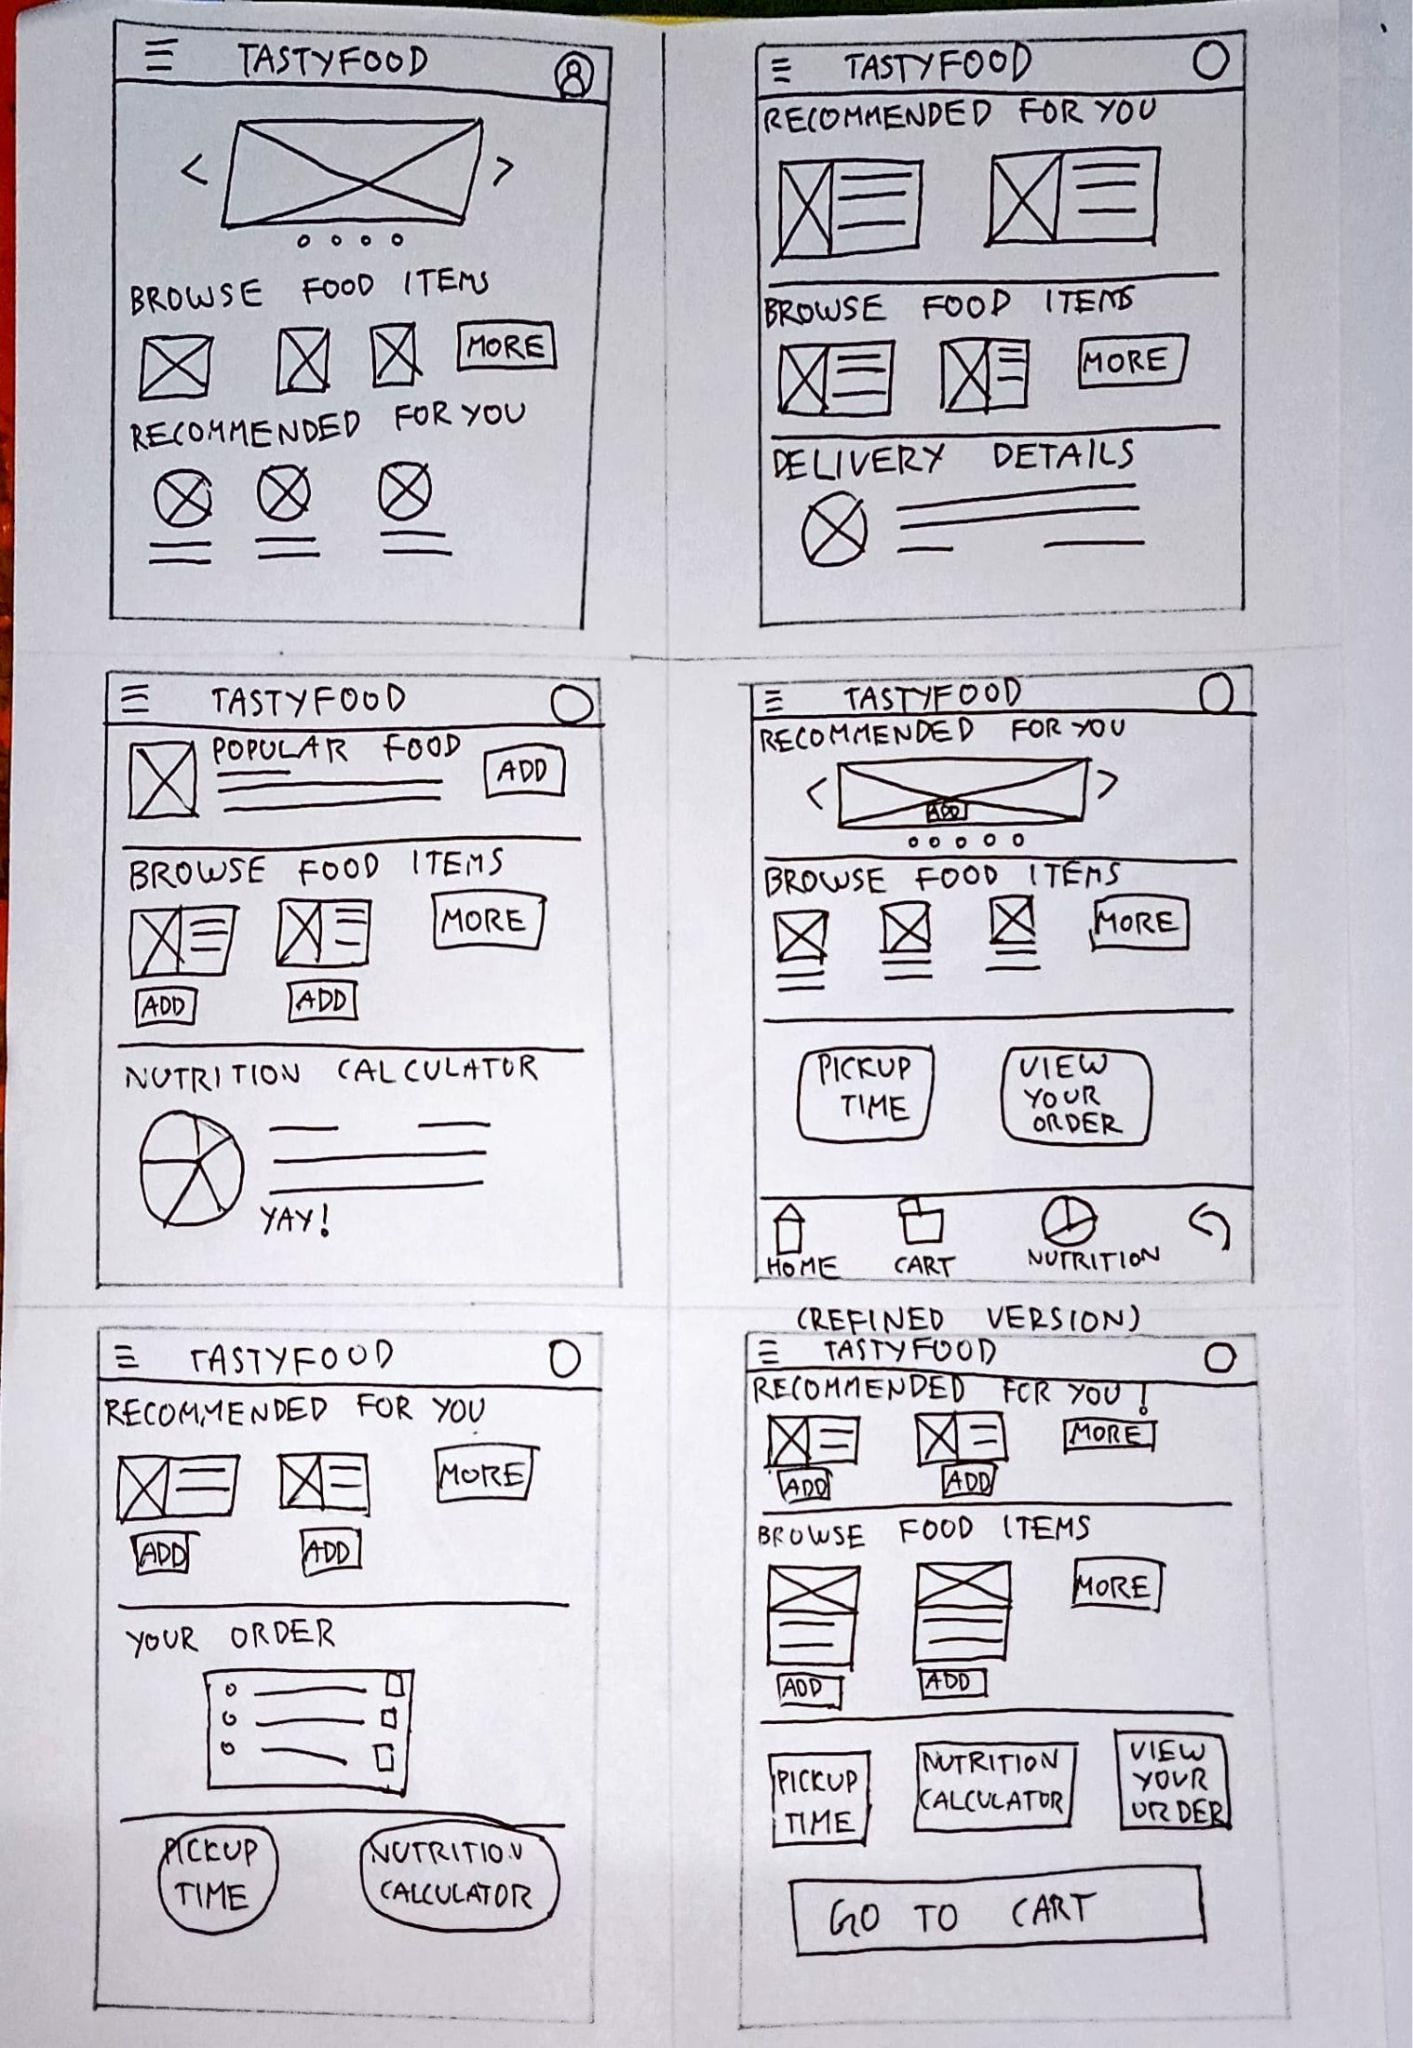 TASTYFOOD
BROWSE FOOD ITEMS
MORE
RECOMMENDED FOR YOU
TASTYFOOD
RECOMMENDED FOR YOU
BROWSE FOOD ITEMS
MORE
DELIVERY DETAILS
TASTYFOOD
POPULAR FOOD
ADD
BROWSE FOOD ITEMS
MORE
ADD ADD
NUTRITION CALCULATOR
YAY!
TASTYFOOD
RECOMMENDED FOR YOU
ADD
BROWSE FOOD ITEMS
MORE
PICKUP
TIME
VIEW
YOUR
ORDER
HOME CART NUTRITION
TASTYFOOD
RECOMMENDED FOR YOU
MORE
ADD ADD
YOUR ORDER
PICKUP
TIME
NUTRITION
CALCULATOR
(REFINED VERSION)
TASTYFOOD
RECOMMENDED FOR YOU!
MORE
ADD ADD
BROWSE FOOD ITEMS
MORE
ADD ADD
PICKUP
TIME
NUTRITION
CALCULATOR
VIEW
YOUR
ORDER
GO TO CART